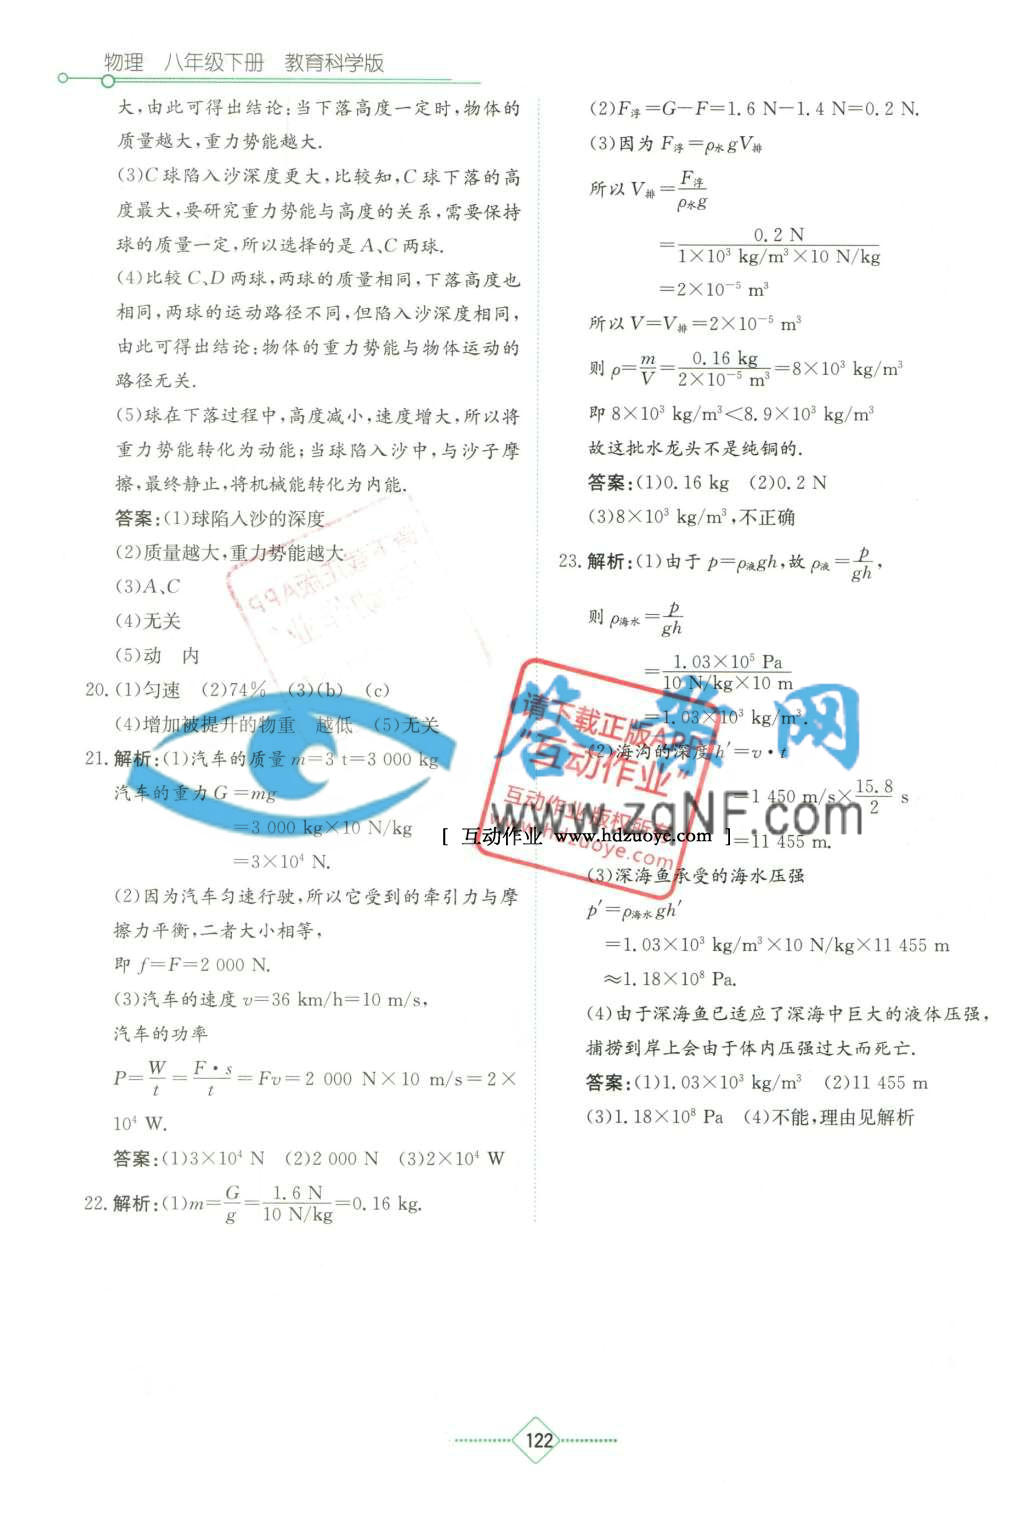 物理　八年级下册　教育科学版
大,由此可得出结论:当下落高度一定时,物体的
质量越大,重力势能越大.
(3)C球陷入沙深度更大,比较知,C球下落的高
度最大,要研究重力势能与高度的关系,需要保持
球的质量一定,所以选择的是A、C两球.
(4)比较C、D两球,两球的质量相同,下落高度也
相同,两球的运动路径不同,但陷入沙深度相同,
由此可得出结论:物体的重力势能与物体运动的
路径无关.
(5)球在下落过程中,高度减小,速度增大,所以将
重力势能转化为动能;当球陷入沙中,与沙子摩
擦,最终静止,将机械能转化为内能.
答案:(1)球陷入沙的深度
(2)质量越大,重力势能越大
(3)A、C
(4)无关
(5)动　内
20.(1)匀速　(2)74%　(3)(b)　(c)
(4)增加被提升的物重　越低　(5)无关
21.解析:(1)汽车的质量m=3 t=3 000 kg
汽车的重力G=mg
=3 000 kg×10 N/kg
=3×10⁴ N.
(2)因为汽车匀速行驶,所以它受到的牵引力与摩
擦力平衡,二者大小相等,
即f=F=2 000 N.
(3)汽车的速度v=36 km/h=10 m/s,
汽车的功率
P=W/t=F·s/t=Fv=2 000 N×10 m/s=2×
10⁴ W.
答案:(1)3×10⁴ N　(2)2 000 N　(3)2×10⁴ W
22.解析:(1)m=G/g=1.6 N/10 N/kg=0.16 kg.
(2)F浮=G-F=1.6 N-1.4 N=0.2 N.
(3)因为F浮=ρ水gV排
所以V排=F浮/ρ水g
=0.2 N/1×10³ kg/m³×10 N/kg
=2×10⁻⁵ m³
所以V=V排=2×10⁻⁵ m³
则ρ=m/V=0.16 kg/2×10⁻⁵ m³=8×10³ kg/m³
即8×10³ kg/m³<8.9×10³ kg/m³
故这批水龙头不是纯铜的.
答案:(1)0.16 kg　(2)0.2 N
(3)8×10³ kg/m³,不正确
23.解析:(1)由于p=ρ液gh,故ρ液=p/gh,
则ρ海水=p/gh
=1.03×10⁵ Pa/10 N/kg×10 m
=1.03×10³ kg/m³.
(2)海沟的深度h′=v·t
=1 450 m/s×15.8/2 s
=11 455 m.
(3)深海鱼承受的海水压强
p′=ρ海水gh′
=1.03×10³ kg/m³×10 N/kg×11 455 m
≈1.18×10⁸ Pa.
(4)由于深海鱼已适应了深海中巨大的液体压强,
捕捞到岸上会由于体内压强过大而死亡.
答案:(1)1.03×10³ kg/m³　(2)11 455 m
(3)1.18×10⁸ Pa　(4)不能,理由见解析
答案网
www.zqNF.com
请下载正版APP
"互动作业"
互动作业版权所有
www.hdzuoye.com
[ 互动作业 www.hdzuoye.com ]
122